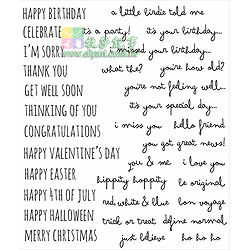 HAPPY BIRTHDAY
a little birdie told me
CELEBRATE
it's a party
it's your birthday...
I'M SORRY
i missed your birthday...
THANK YOU
what the?
you're how old?
GET WELL SOON
you're not feeling well...
THINKING OF YOU
it's your special day...
CONGRATULATIONS
i miss you
hello friend
you got great news!
HAPPY VALENTINE'S DAY
you & me
i love you
HAPPY EASTER
hippity hoppity
be original
HAPPY 4TH OF JULY
red white & blue
bon voyage
HAPPY HALLOWEEN
trick or treat
define normal
MERRY CHRISTMAS
just believe
ho ho ho